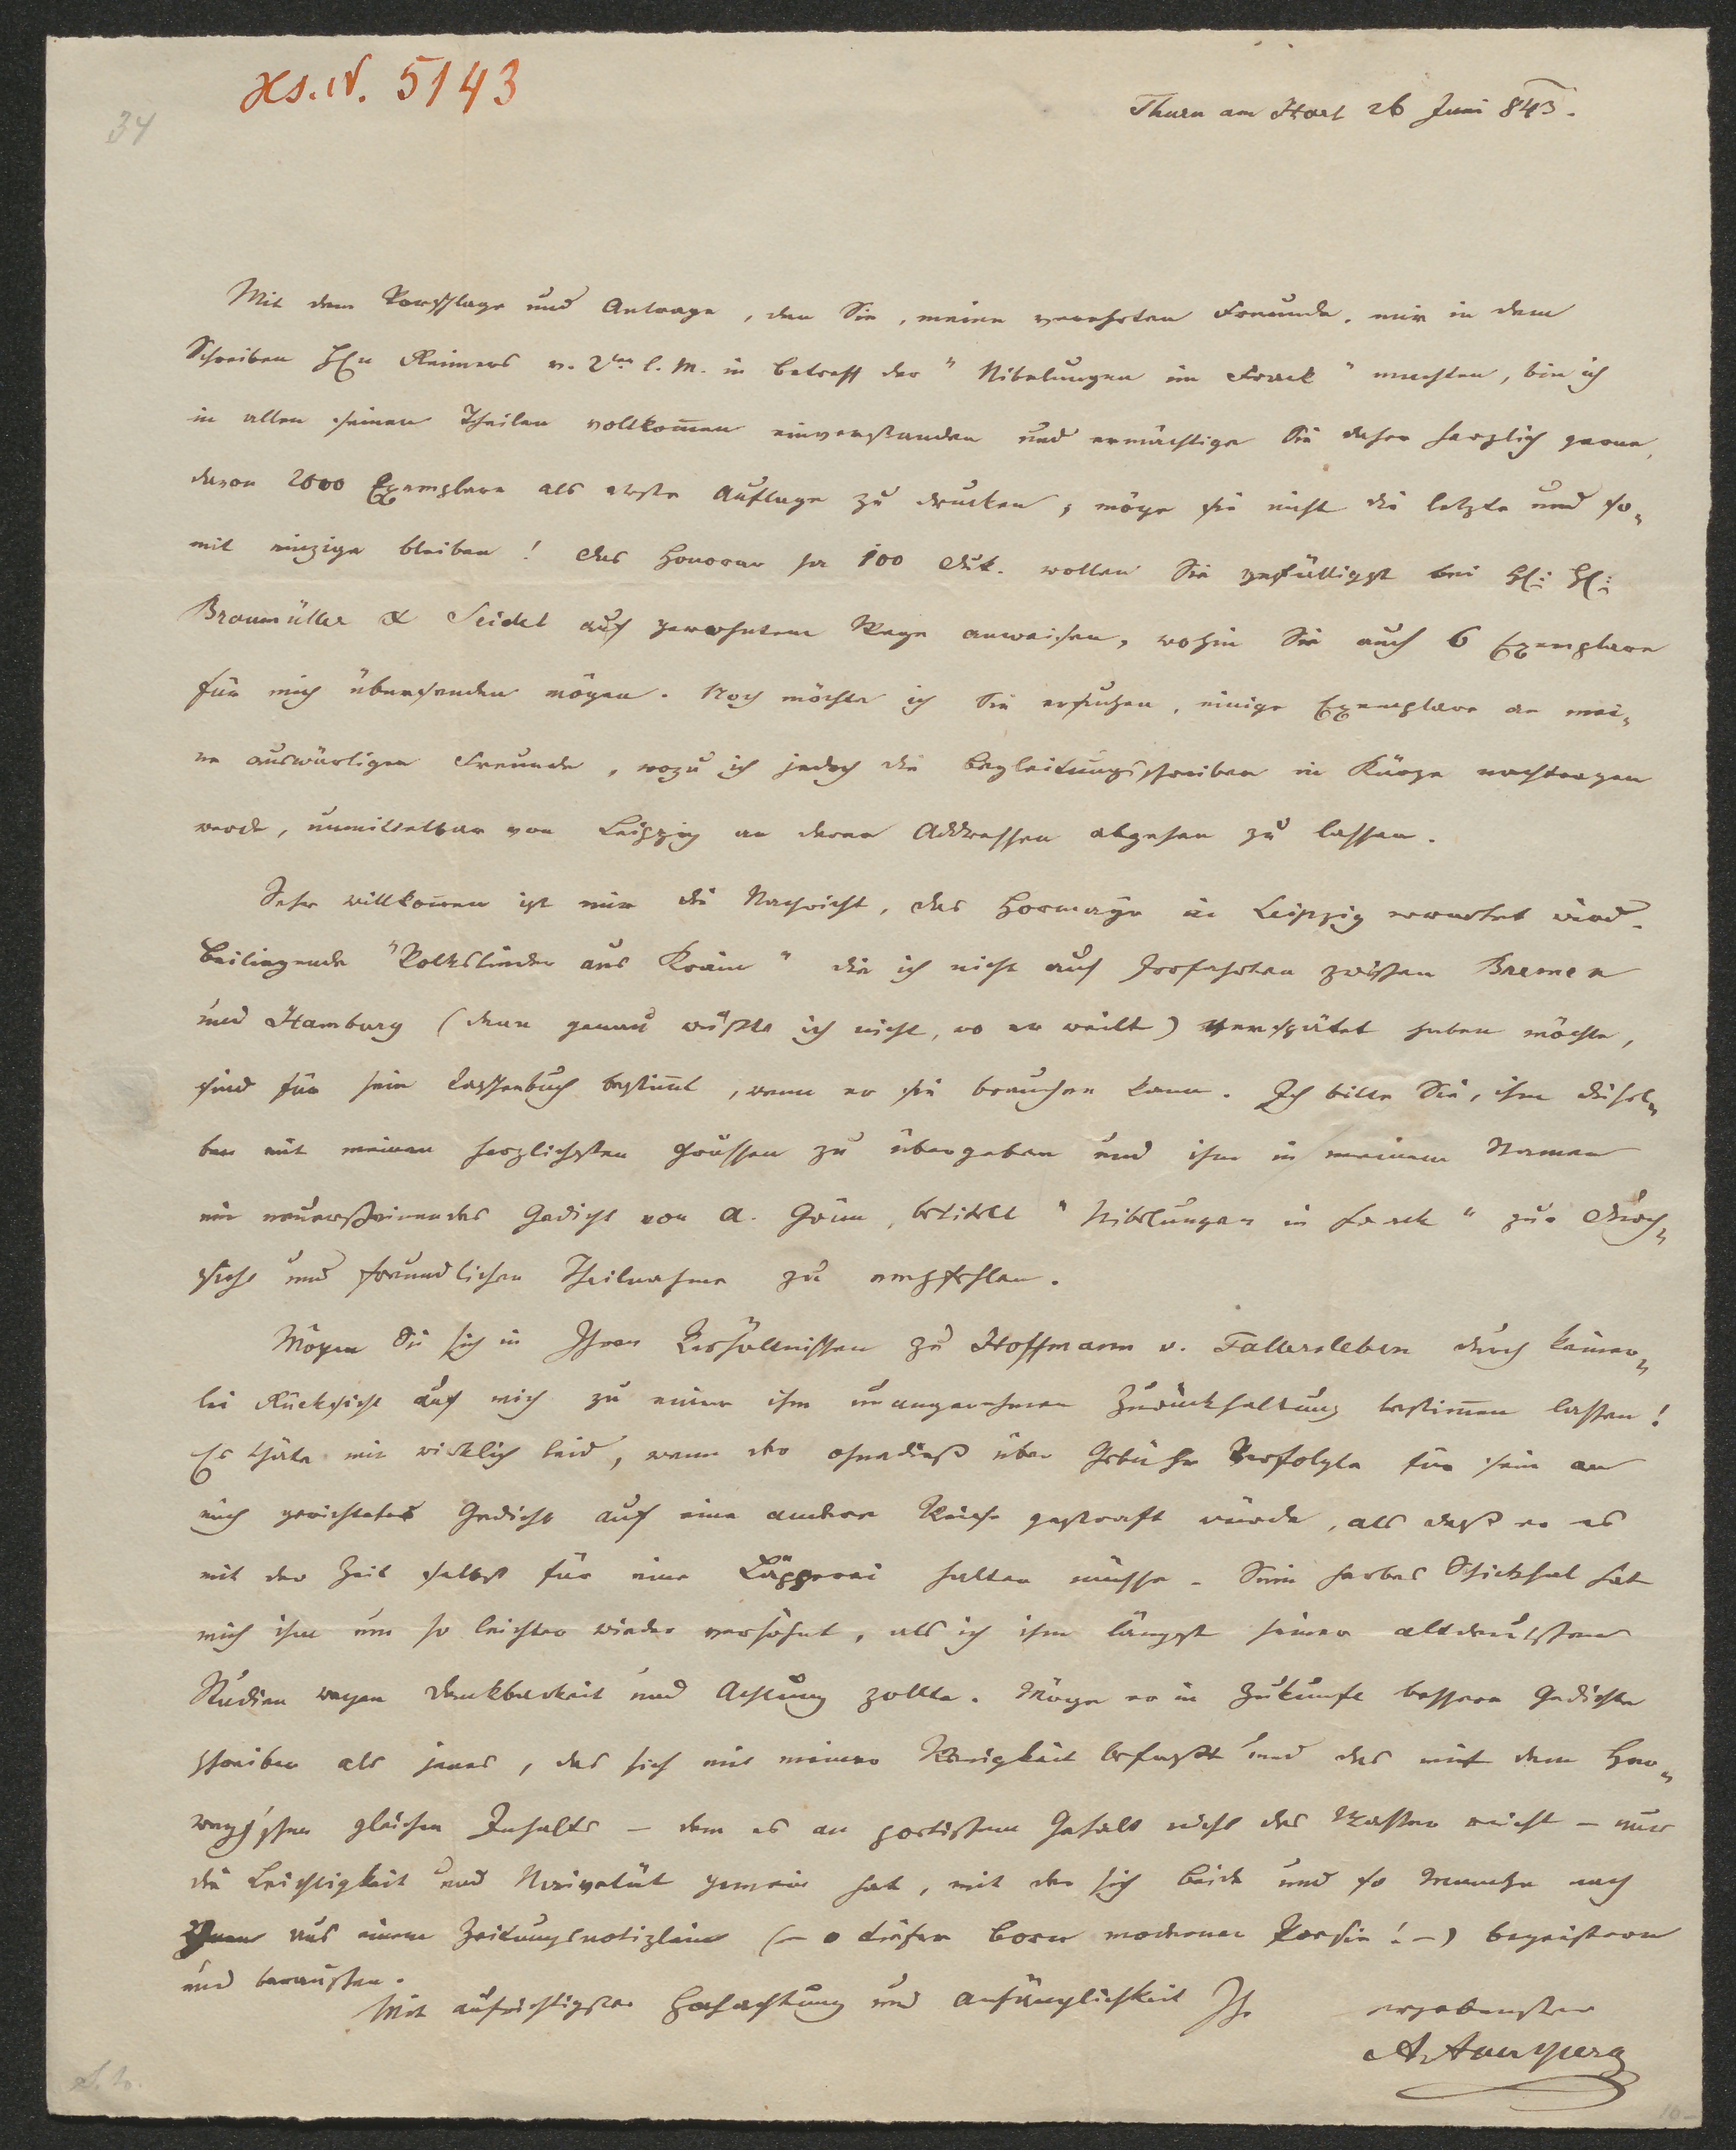 Hs. N. 5143
34
Thurn am Hart 26 Juni 843.
Mit dem Vorschlage und Antrage, den Sie, meine verehrten Freunde, mir in dem
Schreiben Hrn Reimers v. 2ten l. M. in betreff der "Nibelungen im Frack" machten, bin ich
in allen seinen Theilen vollkom̄en einverstanden und ermächtige Sie daher herzlich gerne,
davon 2000 Exemplare als erste Auflage zu drucken; möge sie nicht die letzte und so„
mit einzige bleiben! Das Honorar per 100 Duk. wollen Sie gefälligst bei H: H:
Braumüller & Seidel auf gewohntem Wege anweisen, wohin Sie auch 6 Exemplare
für mich übersenden mögen. Noch möchte ich Sie ersuchen, einige Exemplare an mei„
ne auswärtigen Freunde, wozu ich jedoch die Begleitungsschreiben in Kürze nachtragen
werde, unmittelbar von Leipzig an deren Addressen abgehen zu lassen.
Sehr willkom̄en ist mir die Nachricht, das Hormayr in Leipzig erwartet wird.
Beiliegende "Volkslieder aus Krain" die ich nicht auf Irrfahrten zwischen Bremen
und Hamburg (denn genau wüßte ich nicht, wo er weilt) verspätet haben möchte,
sind für sein Taschenbuch bestim̄t, wenn er sie brauchen kann. Ich bitte Sie, ihm diesel„
ben mit meinen herzlichsten Grüssen zu übergeben und ihm in meinem Namen
ein neuerscheinendes Gedicht von A. Grün, betitelt "Nibelungen im Frack" zur Durch„
sicht und freundlichen Theilnahme zu empfehlen.
Mögen Sie sich in Ihren Verhältnissen zu Hoffmann v. Fallersleben durch keiner„
lei Rücksicht auf mich zu einer ihm unangenehmen Zurückhaltung bestim̄en lassen!
Es thäte mir wirklich leid, wenn der ohnedieß über Gebühr Verfolgte für sein an
mich gerichtetes Gedicht auf eine andere Weise gestraft würde, als daß er es
mit der Zeit selbst für eine Läpperei halten müsse. Sein herbes Schicksal hat
mich ihm um so leichter wieder versöhnt, als ich ihm längst seiner altdeutschen
Studien wegen Dankbarkeit und Achtung zollte. Möge er in Zukunft bessere Gedichte
schreiben als jenes, das sich mit meiner Wenigkeit befaßt und das mit dem Her„
weghschen gleichen Inhalts – dem es an poetischem Gehalt nicht das Wasser reicht – nur
die Leichtigkeit und Naivetät gemein hat, mit der sich beide und so Manche nach
Ihnen aus einem Zeitungsnotizlein (– o tiefer Born moderner Poesie! –) begeistern
und berauschen.
Mit aufrichtigster Hochachtung und Anhänglichkeit Ihr
ergebenster
A. Auersperg